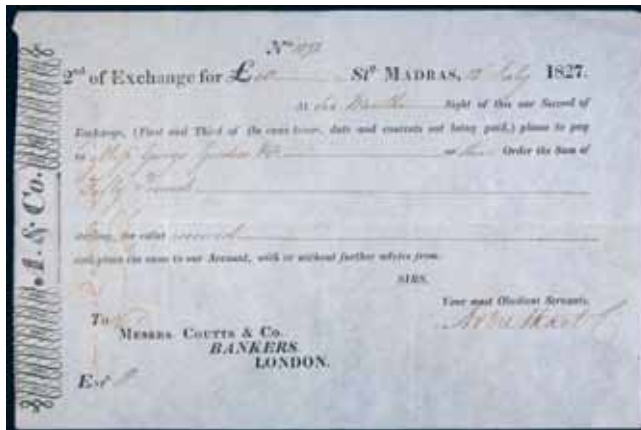 No
2nd of Exchange for £ Stg MADRAS, July 1827.
At Six Months Sight of this our Second of
Exchange, (First and Third of the same tenor, date and contents not being paid,) please to pay
to Messrs George or Order the Sum of
Fifty Pounds
sterling, for value received
and place the same to our Account, with or without further advice from.
SIRS,
Your most Obedient Servants,
To
MESSRS COUTTS & Co.
BANKERS
LONDON.
Entd
A. & Co.